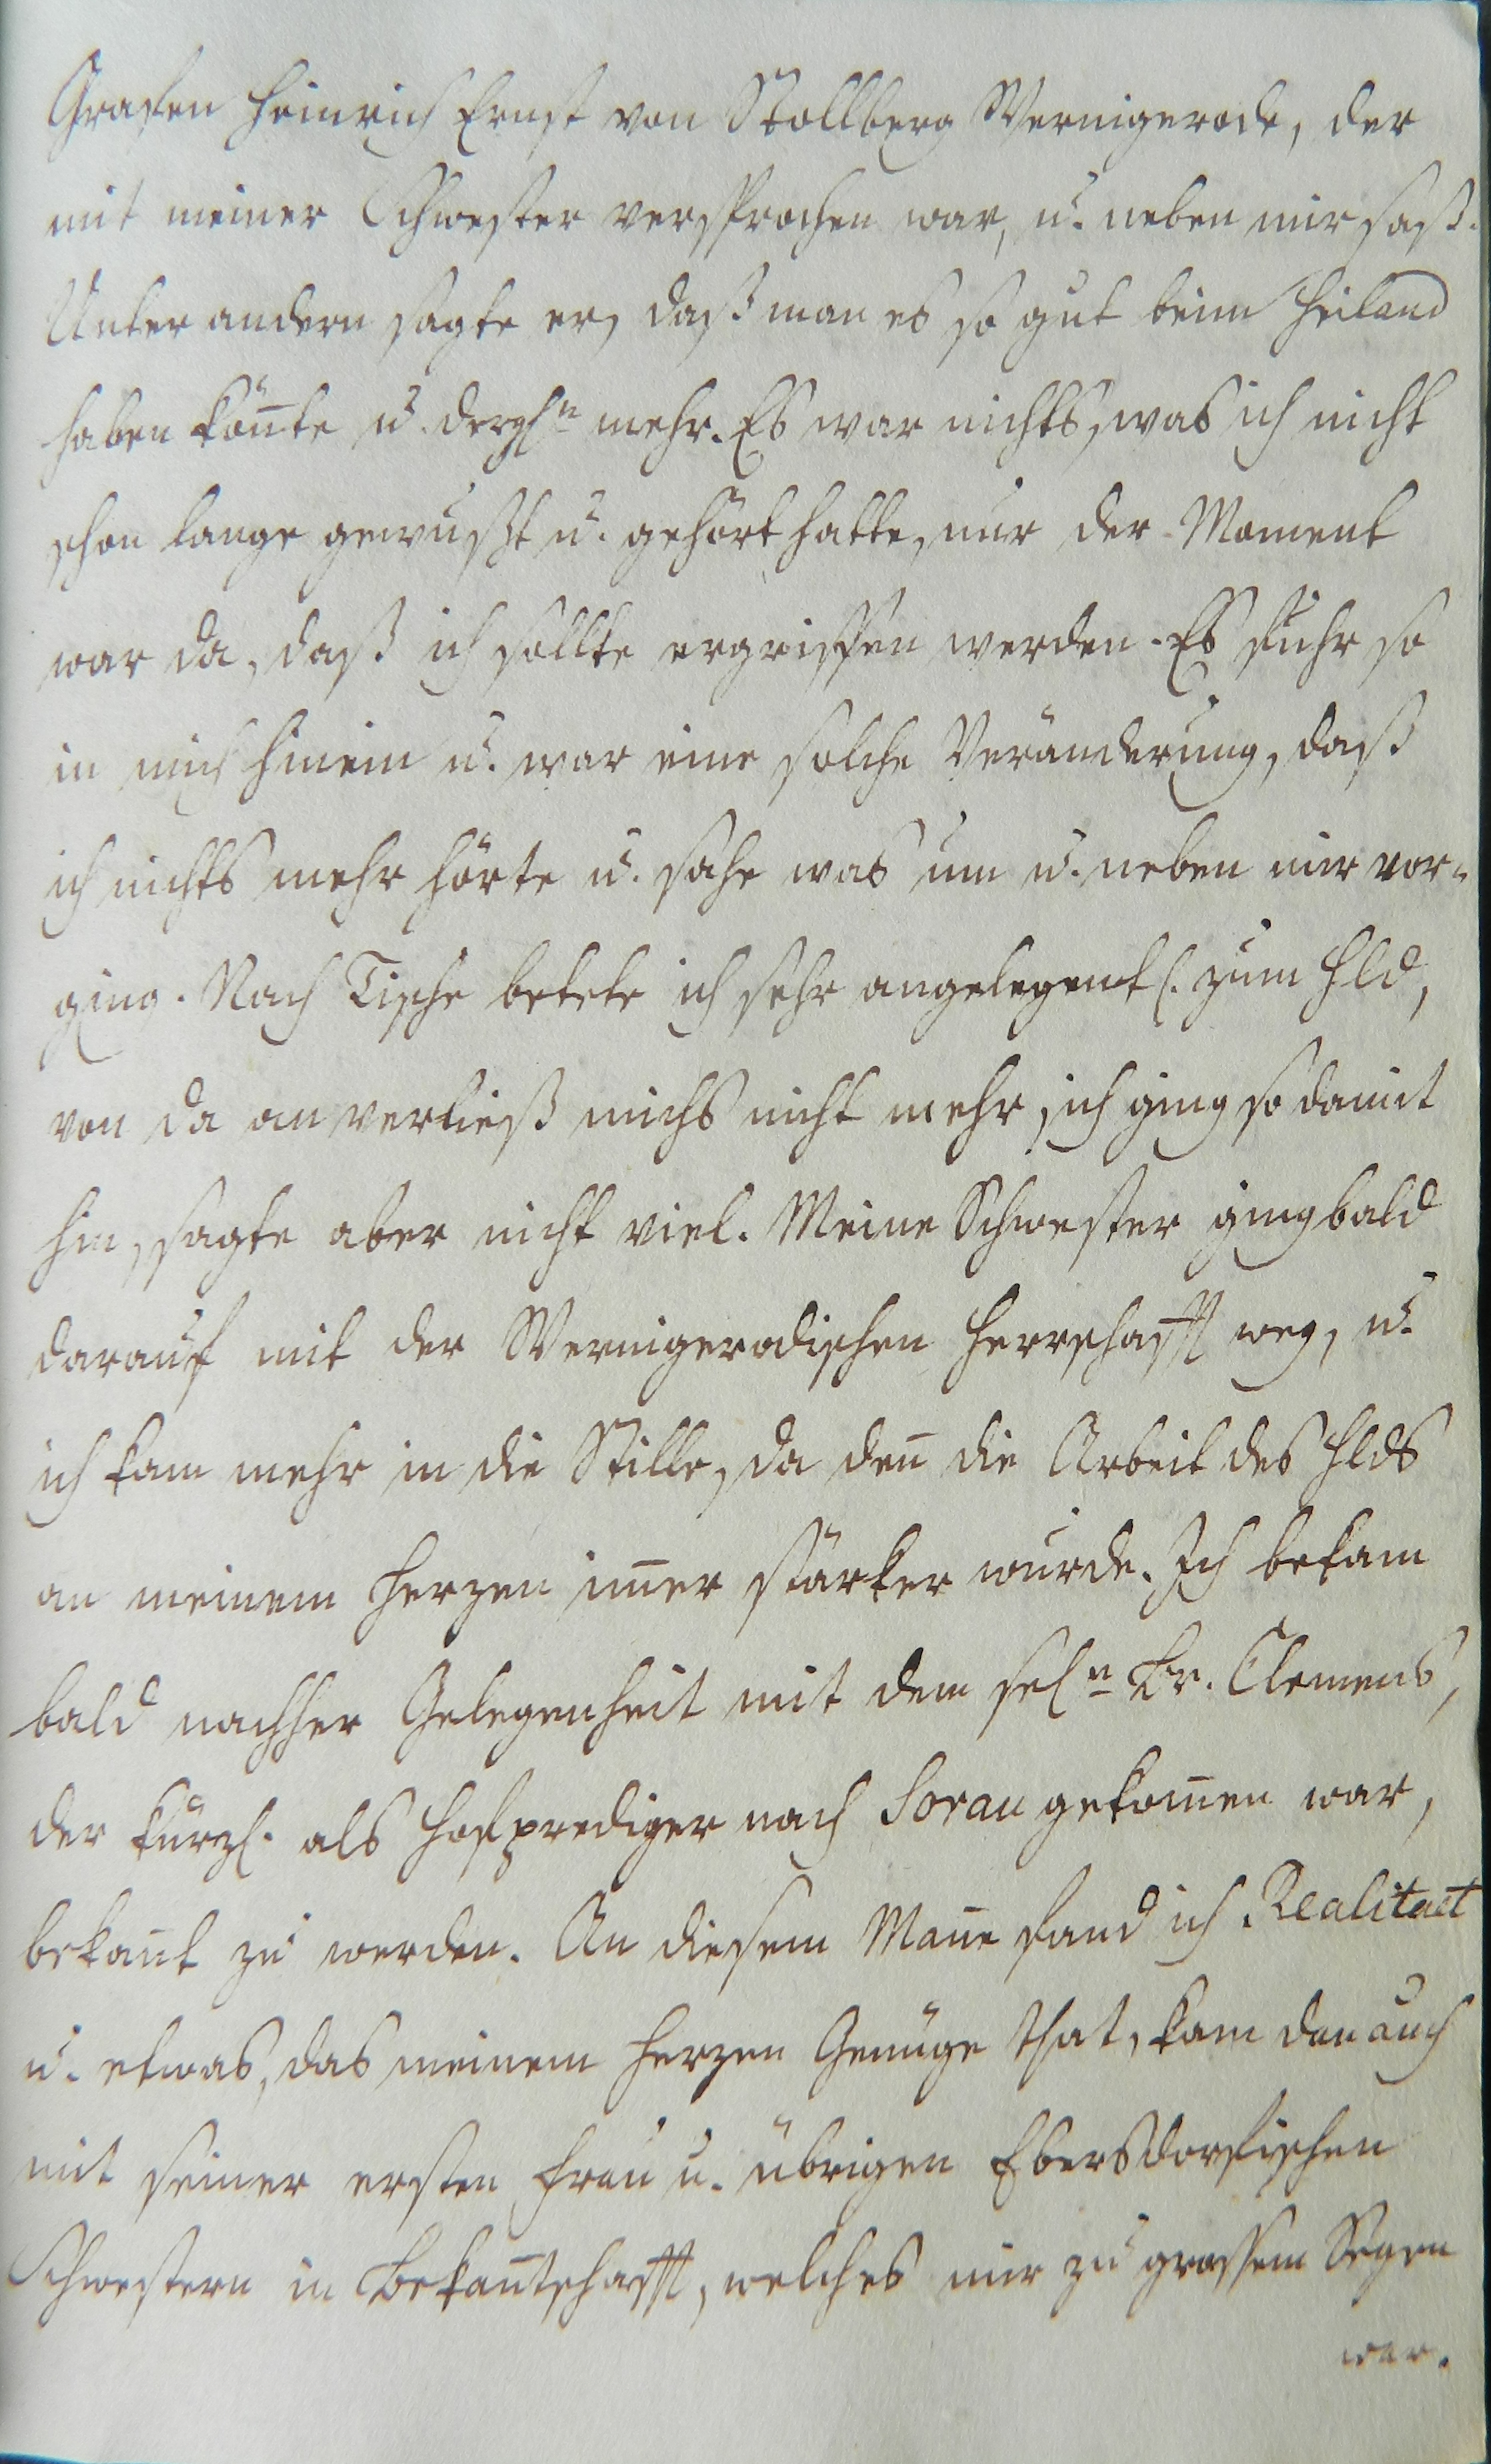 Grafen Heinrich Ernst von Stollberg Wernigerode, der
mit meiner Schwester versprochen war, u. neben mir saß.
Unter andern sagte er, daß man es so gut beim Heiland
haben kon̄te u. dergln mehr. Es war nichts, was ich nicht
schon lange gewußt u. gehört hatte, nur der Moment
war da, daß ich sollte ergriffen werden. Es fuhr so
in mich hinein u. war eine solche Veränderung, daß
ich nichts mehr hörte u. sahe was um u. neben mir vor-
ging. Nach Tische betete ich sehr angelegentl. zum Hld,
von da an verließ michs nicht mehr, ich ging so damit
hin, sagte aber nicht viel. Meine Schwester ging bald
darauf mit der Wernigerodischen Herrschafft weg, u.
ich kam mehr in die Stille, da den̄ die Arbeit des Hlds
an meinem Herzen im̄er stärker wurde. Ich bekam
bald nachher Gelegenheit mit dem seln Br. Clemens,
der kürzl. als Hofprediger nach Sorau gekom̄en war,
bekan̄t zu werden. An diesem Man̄e fand ich Realitaet
u. etwas, das meinem Herzen Genüge that, kam den auch
mit seiner ersten Frau u. übrigen Ebersdorfischen
Schwestern in Bekan̄tschafft, welches mir zu grossem Segen
war.